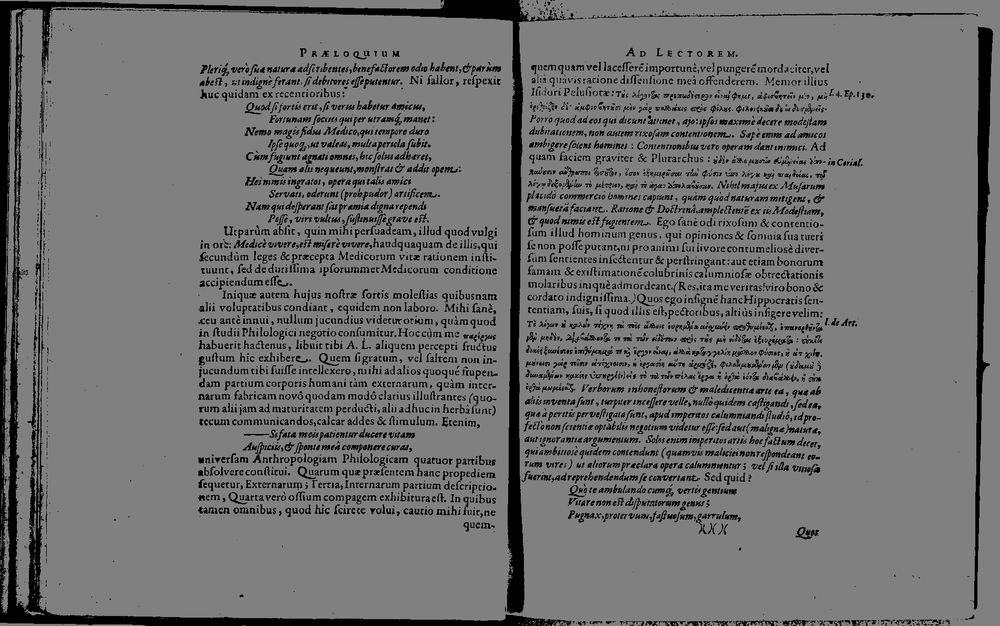 PRÆLOQUIUM
Pleriq́, verò suæ naturæ adscribentes, benefactorem odio habent, & parùm
abest, ut indignè ferant, si debitores esse putentur. Ni fallor, respexit
huc quidam ex recentioribus:
Quod si fortis erit, si verus habetur amicus,
Fortunam socius qui per utramq́, manet:
Nemo magis fidus Medico, qui tempore duro
Ipse quoq́, ut valeas, multa pericla subit.
Cùm fugiunt agnati omnes, hic solus adhæret,
Quam alii nequeunt, monstrat & addit opem:
Hei nimis ingratos, opera qui talis amici
Servati, oderunt (proh pudor) artificem.
Nam qui desperant sat præmia digna rependi
Posse, viri vultus, sustinuisse grave est.
Ut parùm absit, quin mihi persuadeam, illud quod vulgi
in ore: Medicè vivere, est miserè vivere, haudquaquam de illis, qui
secundùm leges & præcepta Medicorum vitæ rationem insti-
tuunt, sed de durissima ipsorummet Medicorum conditione
accipiendum esse.
Iniquæ autem hujus nostræ sortis molestias quibusnam
alii voluptatibus condiant, equidem non laboro. Mihi sanè,
ceu antè innui, nullum jucundius videtur otium, quàm quod
in studii Philologici negotio consumitur. Hoc cùm me
habuerit hactenus, libuit tibi A. L. aliquem percepti fructus
gustum hîc exhibere. Quem si gratum, vel saltem non in-
jucundum tibi fuisse intellexero, nihil ad alios quoque stupen-
dam partium corporis humani tàm externarum, quàm inter-
narum fabricam novô quodam modô clarius illustrantes (quo-
rum alii jam ad maturitatem perducti, alii adhuc in herbâ sunt)
tecum communicandos, calcar addes & stimulum. Etenim,
Si fata meis patientur ducere vitam
Auspiciis, & sponte meâ componere curas,
universam Anthropologiam Philologicam quatuor partibus
absolvere constitui. Quarum quæ præsentem hanc propediem
sequetur, Externarum; Tertia, Internarum partium descriptio-
nem, Quarta verò ossium compagem exhibitura est. In quibus
tamen omnibus, quod hîc scire te volui, cautio mihi fuit, ne
quem-
AD LECTOREM.
quemquam vel lacesserē importunè, vel pungerē mordaciter, vel
aliâ quavis ratione dissensione meâ offenderem. Memor illius
Isidori Pelusiotæ:
l. 4. Ep. 130.
Porro quod ad eos qui dicunt attinet, ajo: ipsos maximè decere modestam
dubitationem, non autem rixosam contentionem. Sæpè enim ad amicos
ambigere solent homines: Contentionibus verò operam dant inimici. Ad
quam faciem graviter & Plutarchus:
in Coriol.
Nihil majus ex Musarum
placido commercio homines capiunt, quàm quod naturam mitigent, &
mansuetā faciant. Ratione & Doctrinâ amplectentē ex iis Modestiam,
& quod nimis est fugientem. Ego sanè odi rixosum & contentio-
sum illud hominum genus, qui opiniones & somnia sua tueri
se non posse putant, ni pro animi sui livore contumeliosè diver-
sum sentientes insectentur & perstringant: aut etiam bonorum
famam & existimationē colubrinis calumniosæ obtrectationis
molaribus iniquè admordeant. (Res, ita me veritas! viro bono &
cordato indignissima.) Quos ego insignē hanc Hippocratis sen-
tentiam, suis, si quod illis est, pectoribus, altiùs infigere velim:
l. de Art.
Verborum inhonestorum & maledicentiæ arte ea, quæ ab
aliis inventa sunt, turpiter incessere velle, nullô quidem castigandi, sed ea,
quæ à peritis pervestigata sunt, apud imperitos calumniandi studiô, id pro-
fectò non scientiæ optabilis negotium videtur esse: sed aut (malignæ) naturæ,
aut ignorantiæ argumentum. Solos enim imperitos artis hoc factum decet,
qui ambitiosè quidem contendunt (quamvis malicieinon respondeant eo-
rum vires) ut aliorum præclara opera calumnientur; vel si illa vitiosa
fuerint, ad reprehendendum se convertant. Sed quid?
Quò te ambulando cumq́, vertis gentium
Vitare non est disputatorum genus;
Pugnax, protervum, fastuosum, garrulum,
)( )( )(
Quos